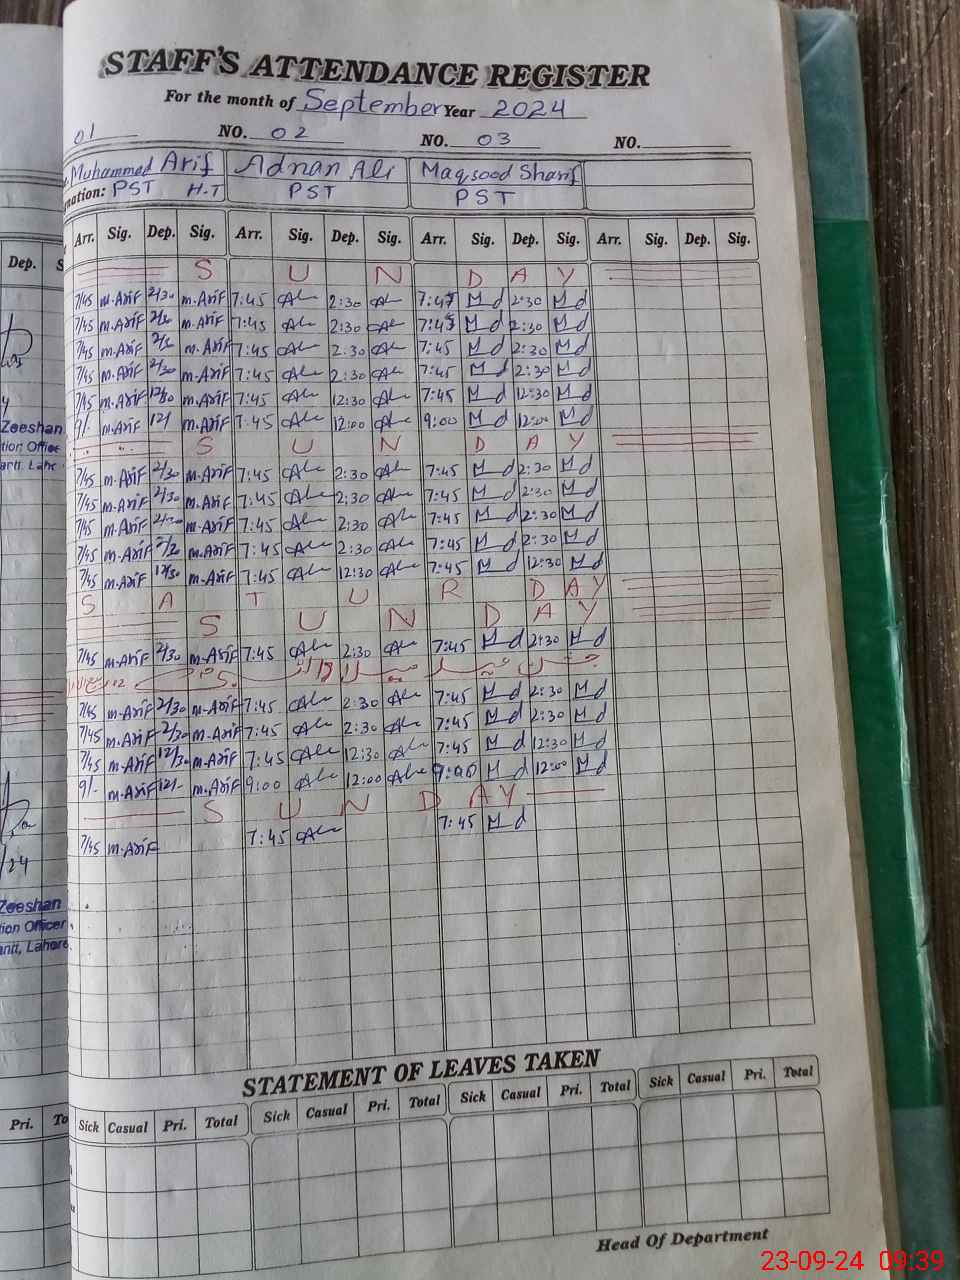 STAFF'S ATTENDANCE REGISTER
For the month of September Year 2024
01 NO. 02 NO. 03 NO.
Muhammad Arif Adnan Ali Maqsood Sharif
nation: PST H.T PST PST
Dep. S Arr. Sig. Dep. Sig. Arr. Sig. Dep. Sig. Arr. Sig. Dep. Sig. Arr. Sig. Dep. Sig.
S U N D A Y
7/45 M.Arif 2/30 M.Arif 7:45 Ali 2:30 Ali 7:45 M d 2:30 M d
7/45 M.Arif 2/30 M.Arif 7:45 Ali 2:30 Ali 7:45 M d 2:30 M d
7/45 M.Arif 2/30 M.Arif 7:45 Ali 2:30 Ali 7:45 M d 2:30 M d
7/45 M.Arif 2/30 M.Arif 7:45 Ali 2:30 Ali 7:45 M d 2:30 M d
7/45 M.Arif 12/30 M.Arif 7:45 Ali 12:30 Ali 7:45 M d 12:30 M d
9/- M.Arif 12/ M.Arif 7:45 Ali 12:00 Ali 9:00 M d 12:00 M d
Zeeshan
S U N D A Y
tion Office
antt, Lahe
7/45 M.Arif 2/30 M.Arif 7:45 Ali 2:30 Ali 7:45 M d 2:30 M d
7/45 M.Arif 2/30 M.Arif 7:45 Ali 2:30 Ali 7:45 M d 2:30 M d
7/45 M.Arif 2/30 M.Arif 7:45 Ali 2:30 Ali 7:45 M d 2:30 M d
7/45 M.Arif 2/30 M.Arif 7:45 Ali 2:30 Ali 7:45 M d 2:30 M d
7/45 M.Arif 12/30 M.Arif 7:45 Ali 12:30 Ali 7:45 M d 12:30 M d
S A T U R D A Y
S U N D A Y
7/45 M.Arif 2/30 M.Arif 7:45 Ali 2:30 Ali 7:45 M d 2:30 M d
7/45 M.Arif 2/30 M.Arif 7:45 Ali 2:30 Ali 7:45 M d 2:30 M d
7/45 M.Arif 2/30 M.Arif 7:45 Ali 2:30 Ali 7:45 M d 2:30 M d
7/45 M.Arif 12/30 M.Arif 7:45 Ali 12:30 Ali 7:45 M d 12:30 M d
9/- M.Arif 12/- M.Arif 9:00 Ali 12:00 Ali 9:00 M d 12:00 M d
S U N D A Y
7/45 M.Arif 7:45 Ali 7:45 M d
/24
Zeeshan
tion Officer
antt, Lahore
STATEMENT OF LEAVES TAKEN
Pri. To Sick Casual Pri. Total Sick Casual Pri. Total Sick Casual Pri. Total Sick Casual Pri. Total
Head Of Department
23-09-24 09:39